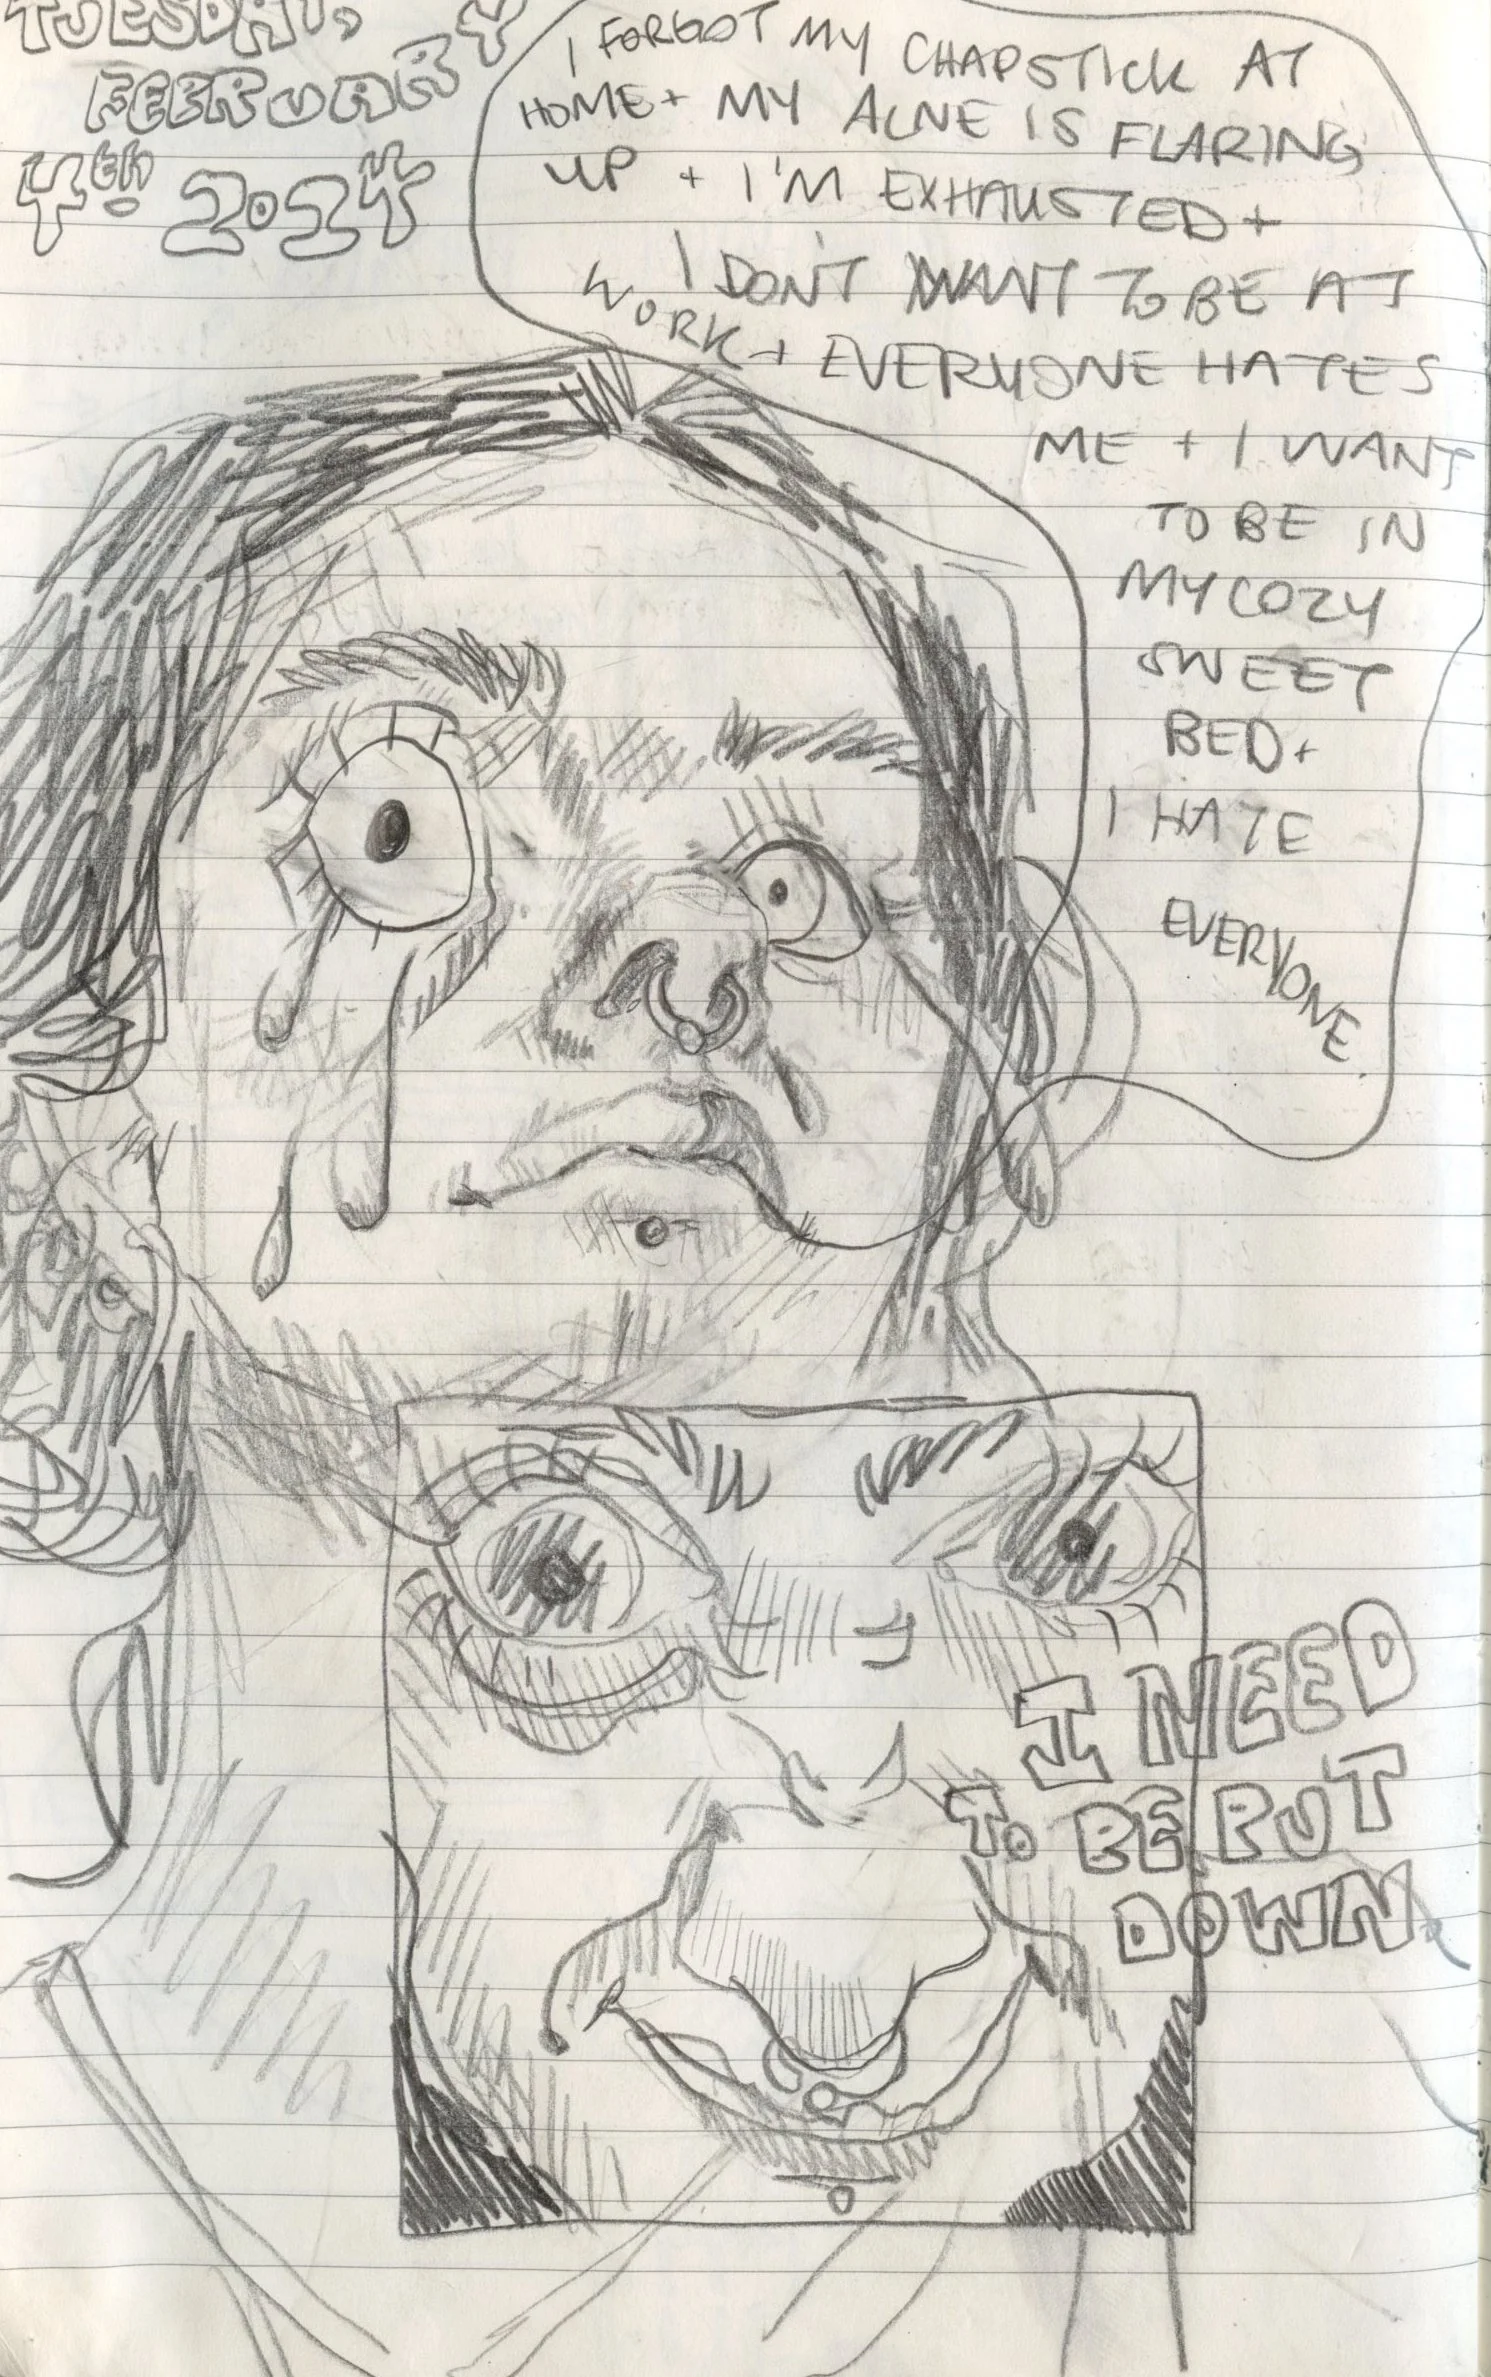 TUESDAY,
FEBRUARY
4th 2024
I FORGOT MY CHAPSTICK AT
HOME + MY ACNE IS FLARING
UP + I'M EXHAUSTED +
I DON'T WANT TO BE AT
WORK + EVERYONE HATES
ME + I WANT
TO BE IN
MY COZY
SWEET
BED +
I HATE
EVERYONE.
I NEED
TO BE PUT
DOWN.